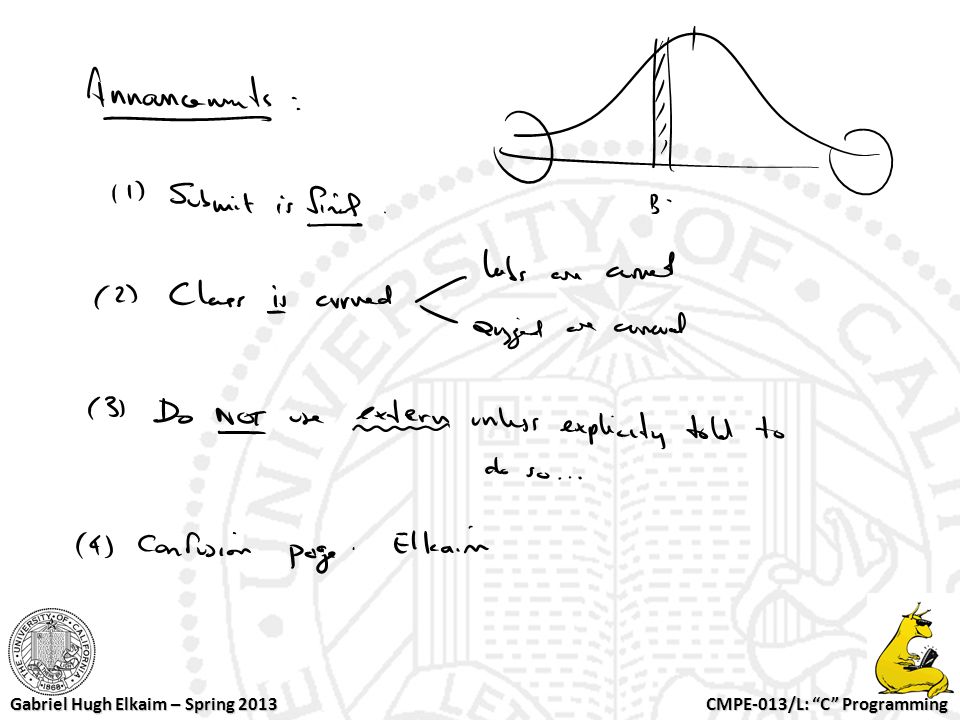 Annancements:
B-
(1) Submit is final.
(2) Class is curved
labs are curved
are curved
(3) Do NOT use extern unless explicity told to
do so...
(4) Confusion page. Elkaim
UNIVERSITY OF CALIFORNIA
THE UNIVERSITY OF CALIFORNIA 1868
Gabriel Hugh Elkaim – Spring 2013
CMPE-013/L: “C” Programming